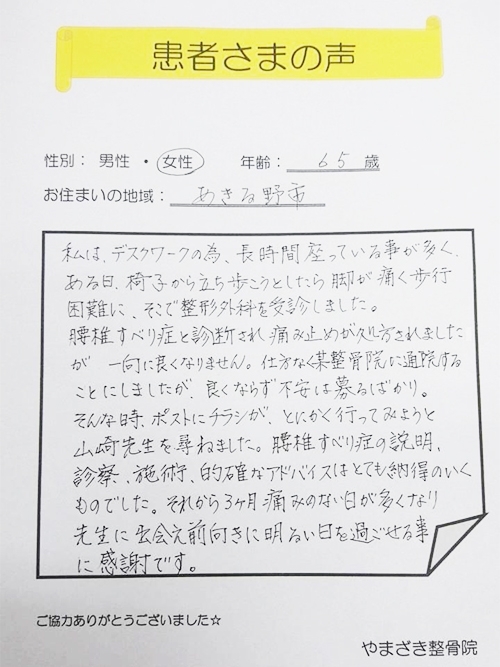 患者さまの声
性別： 男性 ・ 女性 年齢： 65 歳
お住まいの地域： あきる野市
私は、デスクワークの為、長時間座っている事が多く、
ある日、椅子から立ち歩こうとしたら脚が痛く歩行
困難に、そこで整形外科を受診しました。
腰椎すべり症と診断され痛み止めが処方されました
が 一向に良くなりません。仕方なく某整骨院に通院する
ことにしましたが、良くならず不安は募るばかり。
そんな時、ポストにチラシが、とにかく行ってみようと
山崎先生を尋ねました。腰椎すべり症の説明、
診察、施術、的確なアドバイスはとても納得のいく
ものでした。それから3ヶ月痛みのない日が多くなり
先生に出会え前向きに明るい日を過ごせる事
に感謝です。
ご協力ありがとうございました☆
やまざき整骨院